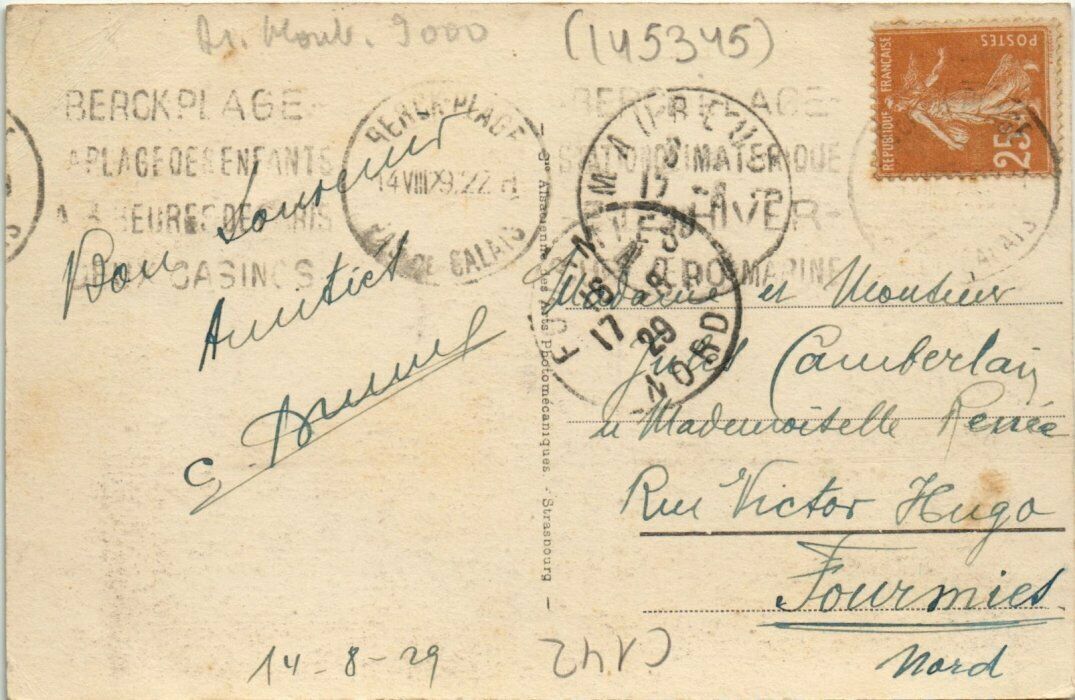 (145345)
BERCK-PLAGE
LA PLAGE DES ENFANTS
A 3 HEURES DE PARIS
DEUX CASINOS
BERCK-PLAGE
14 VIII 29. 22 H
PAS DE CALAIS
BERCK PLAGE
STATION CLIMATERIQUE
D'HIVER
MARINE
REPUBLIQUE FRANCAISE
POSTES
25c
CALAIS
17
FOURMIES
17 8
29
NORD
Bon Souvenir
Amitiés
Madame et Monsieur
Jules Camberlain
et Mademoiselle Renée
Rue Victor Hugo
Fournies
Nord
Sté Alsacienne des Arts Photomécaniques. - Strasbourg
14-8-29
C142